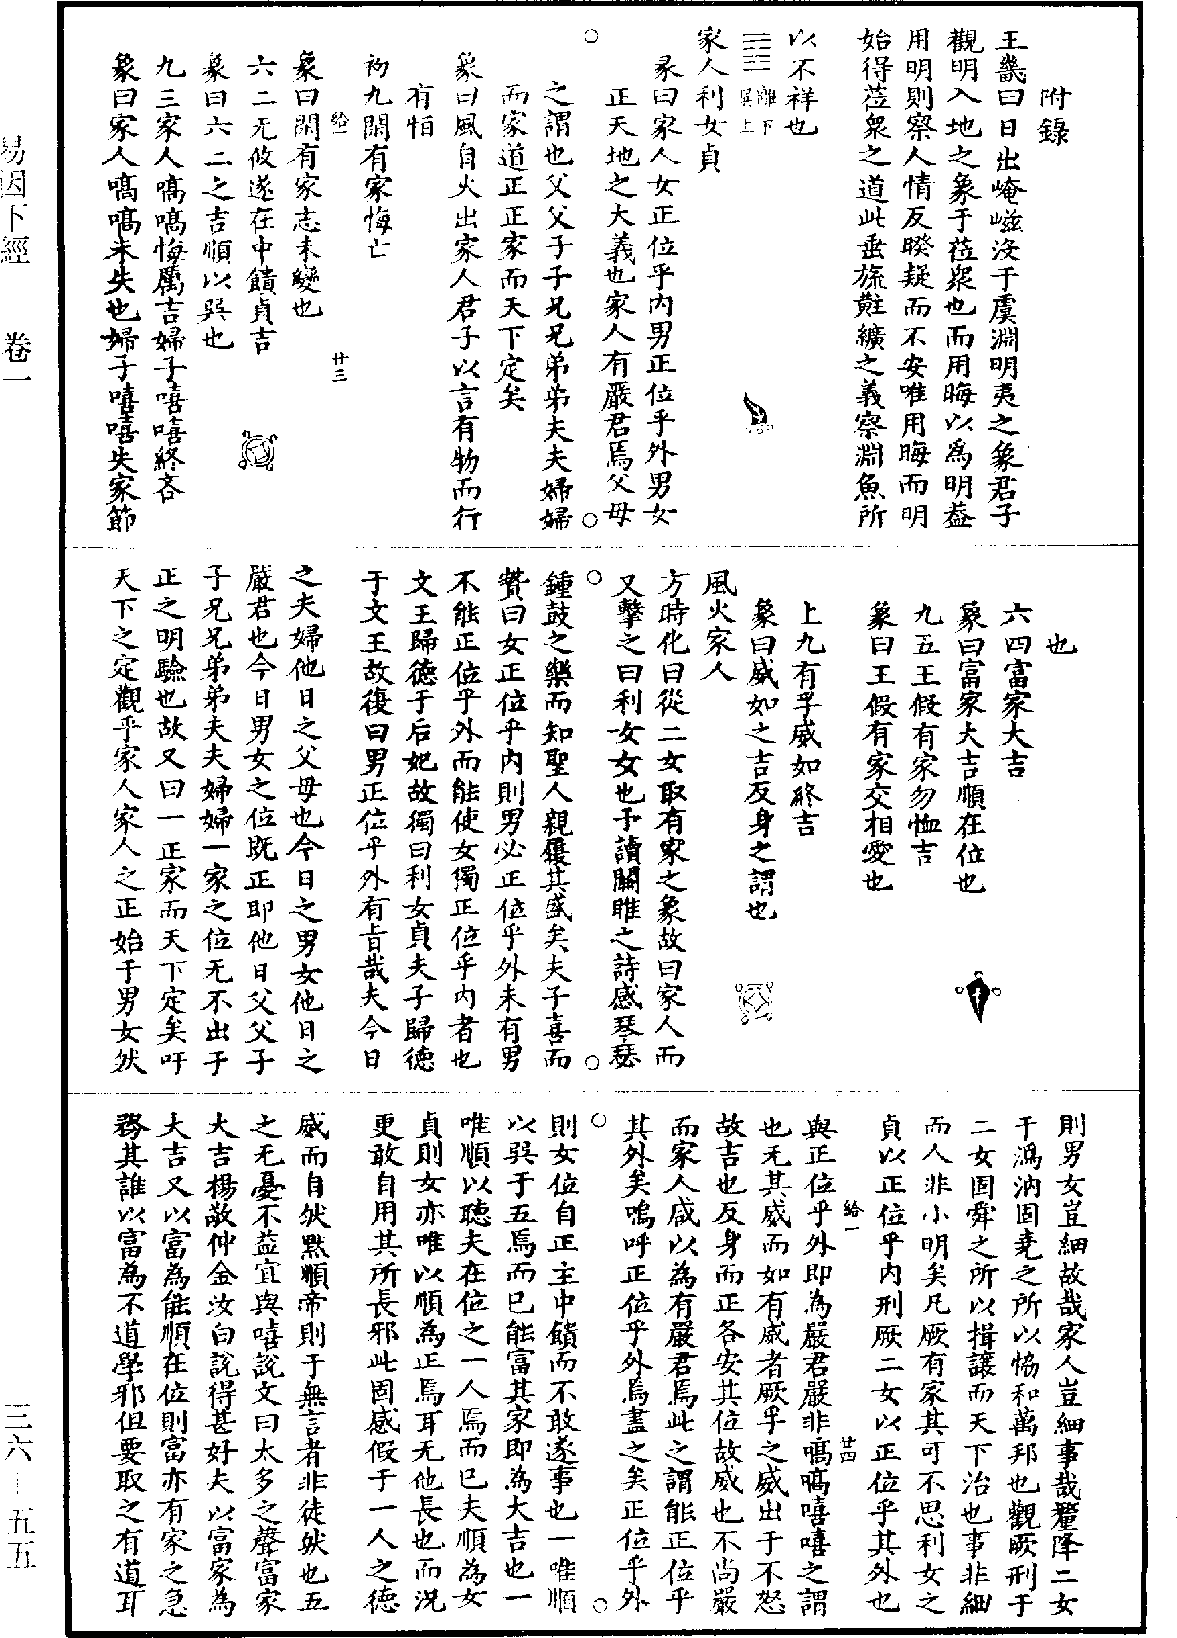 附錄
王畿曰日出崦嵫沒于虞淵明夷之象君子
觀明入地之象于莅衆也而用晦以為明蓋
用明則察人情反睽疑而不安唯用晦而明
始得莅衆之道此垂旒黈纊之義察淵魚所
以不祥也
離下
巽上
家人利女貞
彖曰家人女正位乎内男正位乎外男女
正天地之大義也家人有嚴君焉父母
之謂也父父子子兄兄弟弟夫夫婦婦
而家道正正家而天下定矣
象曰風自火出家人君子以言有物而行
有恒
初九閑有家悔亡
給一
廿三
象曰閑有家志未變也
六二无攸遂在中饋貞吉
象曰六二之吉順以巽也
九三家人嗃嗃悔厲吉婦子嘻嘻終吝
象曰家人嗃嗃未失也婦子嘻嘻失家節
也
六四富家大吉
象曰富家大吉順在位也
九五王假有家勿恤吉
象曰王假有家交相愛也
上九有孚威如終吉
象曰威如之吉反身之謂也
風火家人
方時化曰從二女取有家之象故曰家人而
又擊之曰利女女也予讀關雎之詩感琴瑟
鍾鼓之樂而知聖人親履其盛矣夫子喜而
贊曰女正位乎内則男必正位乎外未有男
不能正位乎外而能使女獨正位乎内者也
文王歸德于后妃故獨曰利女貞夫子歸德
于文王故復曰男正位乎外有旨哉夫今日
之夫婦他日之父母也今日之男女他日之
嚴君也今日男女之位既正即他日父父子
子兄兄弟弟夫夫婦婦一家之位无不出于
正之明驗也故又曰一正家而天下定矣吁
天下之定觀乎家人家人之正始于男女然
則男女豈細故哉家人豈細事哉釐降二女
于溈汭固堯之所以恊和萬邦也觀厥刑于
二女固舜之所以揖讓而天下治也事非細
而人非小明矣凡厥有家其可不思利女之
貞以正位乎内刑厥二女以正位乎其外也
給一
廿四
與正位乎外即為嚴君嚴非嗃嗃嘻嘻之謂
也无其威而如有威者厥孚之威出于不怒
故吉也反身而正各安其位故威也不尚嚴
而家人咸以為有嚴君焉此之謂能正位乎
其外矣嗚呼正位乎外焉盡之矣正位乎外
則女位自正主中饋而不敢遂事也一唯順
以巽于五焉而已能富其家即為大吉也一
唯順以聽夫在位之一人焉而已夫順為女
貞則女亦唯以順為正焉耳无他長也而況
更敢自用其所長邪此固感假于一人之德
威而自然默順帝則于無言者非徒然也五
之无憂不益宜與嘻說文曰太多之聲富家
大吉楊敬仲金汝白說得甚好夫以富家為
大吉又以富為能順在位則富亦有家之急
務其誰以富為不道學邪但要取之有道耳
易因下經
卷一
三六—五五